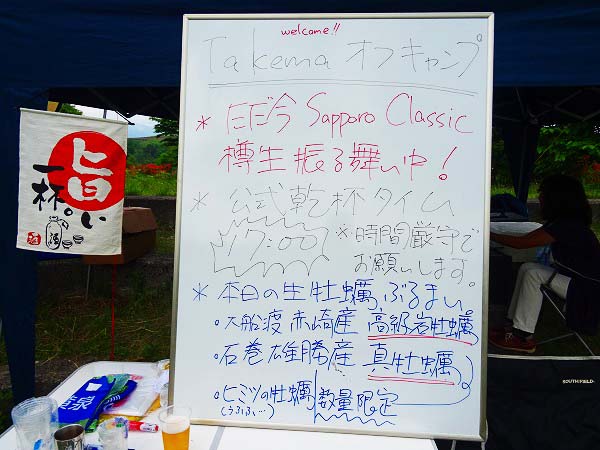 welcome!!
Takema オフキャンプ
* ただ今 Sapporo Classic
樽生振る舞い中!
* 公式乾杯タイム
17:00 ※時間厳守で
お願いします。
* 本日の生牡蠣ぶるまい。
・大船渡赤崎産 高級岩牡蠣
・石巻雄勝産 真牡蠣
・ヒミツの牡蠣 数量限定
(うふふ…)
旨い
一杯。
酒
SOUTHFIELD